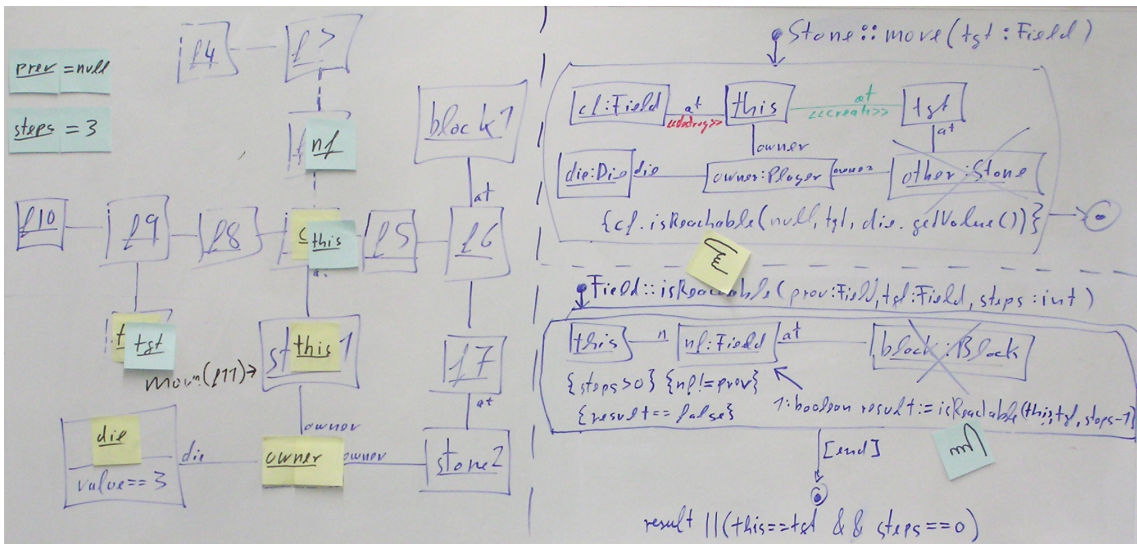 prev = null
steps = 3
f4
nf
block1
at
f10
f9
f8
this
f5
f6
tgt
this
f7
at
owner
die
value==3
die
owner
owner
stone2
Stone::move(tgt:Field)
cf:Field
at
<<destroy>>
this
at
<<create>>
tgt
owner
at
die:Die
die
owner:Player
owner
other:Stone
{cf.isReachable(null,tgt,die.getValue())}
Field::isReachable(prev:Field,tgt:Field,steps:int)
this
n
nf:Field
at
block:Block
{steps>0} {nf!=prev}
{result==false}
1:boolean result:=isReachable(this,tgt,steps-1)
[end]
result ||(this==tgt && steps==0)